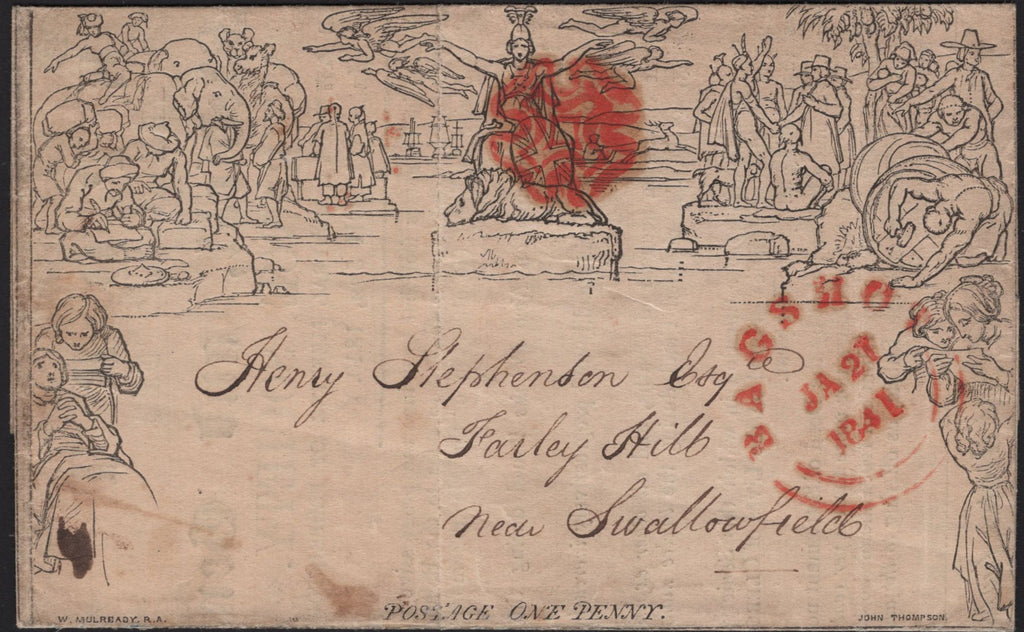 BAGSHO
JA 21
1841
Henry Stephenson Esqre
Farley Hill
near Swallowfield
POSTAGE ONE PENNY.
W. MULREADY. R.A.
JOHN THOMPSON.